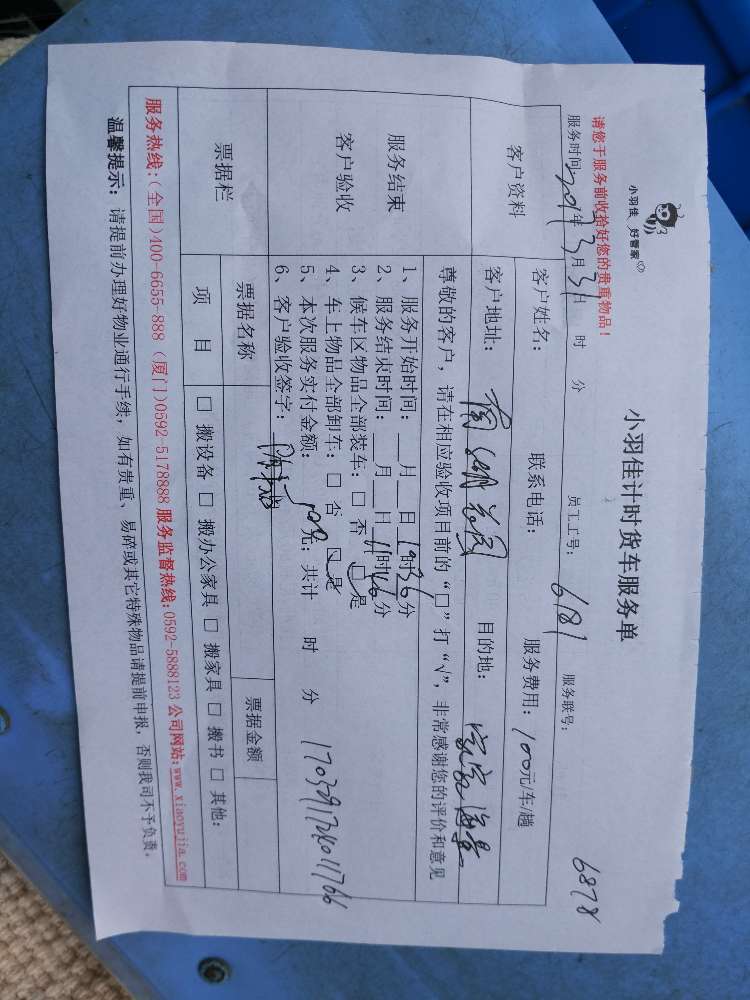 小羽佳 好管家
小羽佳计时货车服务单
6878
请您于服务前收拾好您的贵重物品！
服务时间 年3月31日 时 分 员工工号：6181 服务联号：
客户资料
客户姓名： 联系电话： 服务费用：100元/车/趟
客户地址：南湖花园 目的地：海景
尊敬的客户，请在相应验收项目前的“□”打“√”，非常感谢您的评价和意见
服务结束
客户验收
1、服务开始时间：__月__日 时36分
2、服务结束时间：__月__日 时46分
3、候车区物品全部装车：□ 否 □ 是
4、车上物品全部卸车：□ 否 □ 是
5、本次服务实付金额： 元；共计 时 分
6、客户验收签字：
票据栏
票据名称 票据金额
项 目 □ 搬设备 □ 搬办公家具 □ 搬家具 □ 搬书 □ 其他:
服务热线:(全国)400-6655-888 (厦门)0592-5178888 服务监督热线:0592-5888123 公司网站:www.xiaoyujia.com
温馨提示：请提前办理好物业通行手续，如有贵重、易碎或其它特殊物品请提前申报，否则我司不予负责。